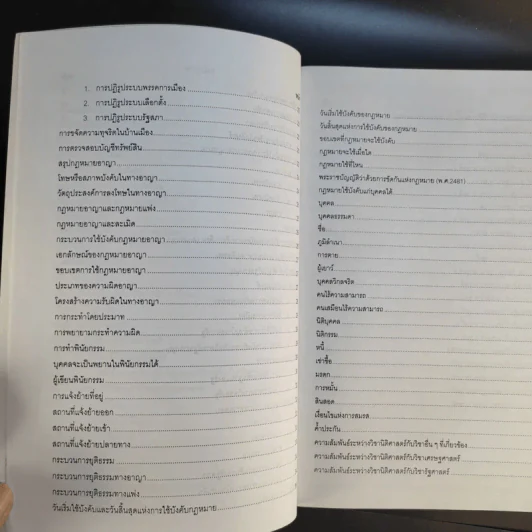 1. การปฏิรูประบบพรรคการเมือง
2. การปฏิรูประบบเลือกตั้ง
3 การปฏิรูประบบรัฐสภา
การขจัดความทุจริตในบ้านเมือง
การตรวจสอบบัญชีทรัพย์สิน
สรุปกฎหมายอาญา
โทษหรือสภาพบังคับในทางอาญา
วัตถุประสงค์การลงโทษในทางอาญา
กฎหมายอาญาและกฎหมายแพ่ง
กฎหมายอาญาและละเมิด
กระบวนการใช้บังคับกฎหมายอาญา
เอกลักษณ์ของกฎหมายอาญา
ขอบเขตการใช้กฎหมายอาญา
ประเภทของความผิดอาญา
โครงสร้างความรับผิดในทางอาญา
การกระทำโดยประมาท
การพยายามกระทำความผิด
การทำพินัยกรรม
บุคคลจะเป็นพยานในพินัยกรรมได้
ผู้เขียนพินัยกรรม
การแจ้งย้ายที่อยู่
สถานที่แจ้งย้ายออก
สถานที่แจ้งย้ายเข้า
สถานที่แจ้งย้ายปลายทาง
กระบวนการยุติธรรม
กระบวนการยุติธรรมทางอาญา
กระบวนการยุติธรรมทางแพ่ง
วันเริ่มใช้บังคับและวันสิ้นสุดแห่งการใช้บังคับกฎหมาย
วันเริ่มใช้บังคับของกฎหมาย
วันสิ้นสุดแห่งการใช้บังคับของกฎหมาย
ขอบเขตที่กฎหมายจะใช้บังคับ
กฎหมายจะใช้เมื่อใด
กฎหมายใช้ที่ไหน
พระราชบัญญัติว่าด้วยการขัดกันแห่งกฎหมาย (พ.ศ.2481)
กฎหมายใช้บังคับแก่บุคคลใด
บุคคล
บุคคลธรรมดา
ชื่อ
ภูมิลำเนา
การตาย
ผู้เยาว์
บุคคลวิกลจริต
คนไร้ความสามารถ
คนเสมือนไร้ความสามารถ
นิติบุคคล
นิติกรรม
หนี้
เช่าซื้อ
มรดก
การหมั้น
สินสอด
เงื่อนไขแห่งการสมรส
ค้ำประกัน
ความสัมพันธ์ระหว่างวิชานิติศาสตร์กับวิชาอื่น ๆ ที่เกี่ยวข้อง
ความสัมพันธ์ระหว่างวิชานิติศาสตร์กับวิชาเศรษฐศาสตร์
ความสัมพันธ์ระหว่างวิชานิติศาสตร์กับวิชารัฐศาสตร์